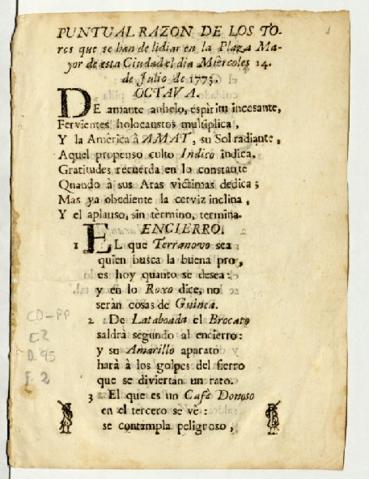 PUNTUAL RAZON DE LOS TO-
ros que se han de lidiar en la Plaza Ma-
yor de esta Ciudad el dia Miercoles 14.
de Julio de 1773.
OCTAVA.
DE amante anhelo, espiritu incesante,
Fervientes holocaustos multiplica,
Y la America à AMAT, su Sol radiante,
Aquel propenso culto Indico indica,
Gratitudes recuerda en lo constante
Quando à sus Aras victimas dedica;
Mas ya obediente la cerviz inclina,
Y el aplauso, sin tèrmino, termina.
ENCIERRO.
1 EL que Terranovo sea
quien busca la buena pro,
es hoy quanto se desea:
y en lo Roxo dice, no
seràn cosas de Guinea.
2 De Lataboada el Brocato
saldrà segundo al encierro:
y su Amarillo aparato
harà à los golpes del fierro
que se diviertan un rato.
3 El que es un Cafè Donoso
en el tercero se vè:
se contampla peligroso,
CD-PP
C2
D.95
F.2